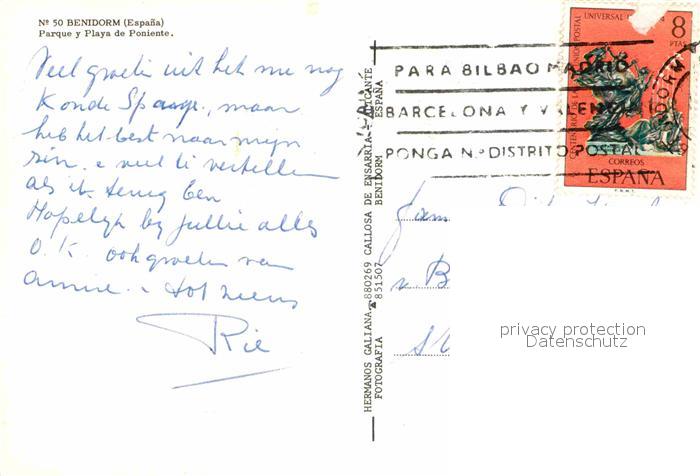 Nº 50 BENIDORM (España)
Parque y Playa de Poniente.
Veel groeten uit het me nog
koude Spanje, maar
heb het best naar mijn
zin. veel te vertellen
als ik terug ben
Hopelijk bij jullie alles
O.K. ook groeten van
Annie. tot ziens
Rie
HERMANOS GALIANA - 880269 CALLOSA DE ENSARRIA - ALICANTE
FOTOGRAFIA 851507 BENIDORM ESPAÑA
UNIVERSAL
8
PTAS
CENTENARIO DE LA UNION POSTAL
CORREOS
ESPAÑA
PARA BILBAO MADRID
BARCELONA Y VALENCIA
PONGA N.º DISTRITO POSTAL
Fam
B
privacy protection
Datenschutz